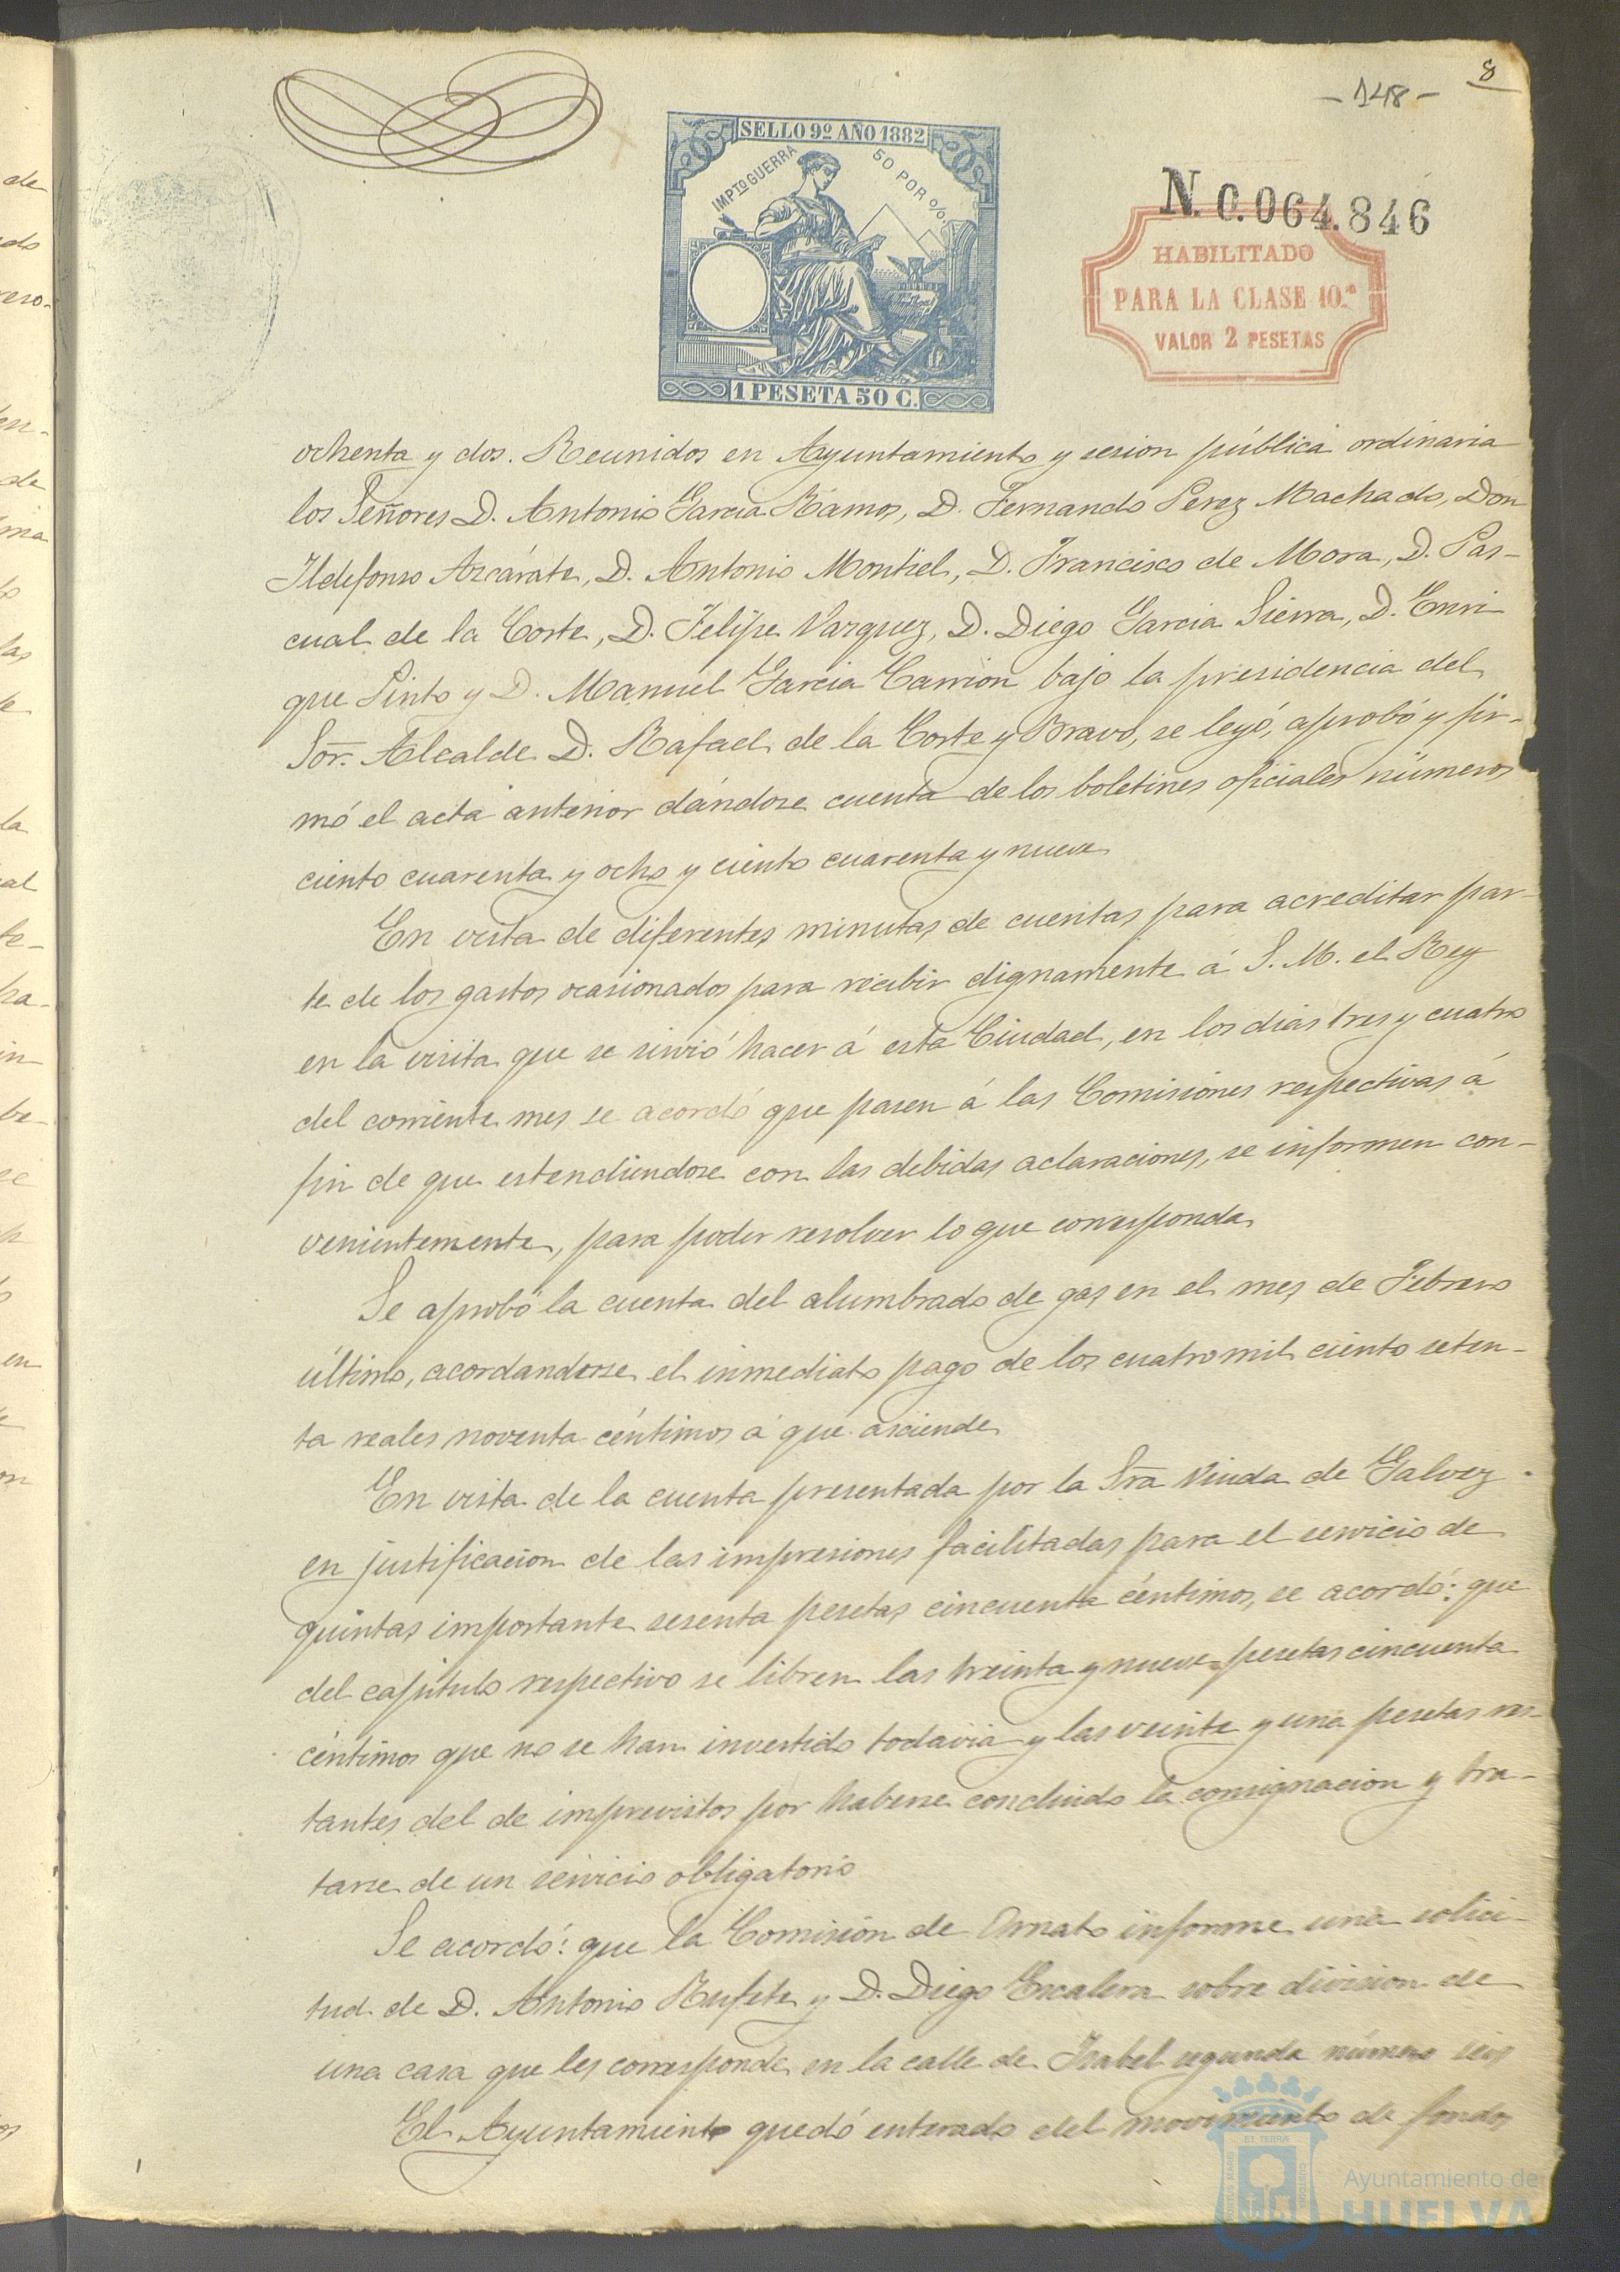 8
- 148 -
SELLO 9º AÑO 1882
IMPTO GUERRA 50 POR %.
1 PESETA 50 C.
N. 0.064.846
HABILITADO
PARA LA CLASE 10.ª
VALOR 2 PESETAS
ochenta y dos. Reunidos en Ayuntamiento y sesion pública ordinaria
los Señores D. Antonio Garcia Ramos, D. Fernando Perez Machado, Don
Ildefonso Azcárate, D. Antonio Montiel, D. Francisco de Mora, D. Pas-
cual de la Corte, D. Felipe Vazquez, D. Diego Garcia Sierra, D. Enri
que Pinto y D. Manuel Garcia Carrion bajo la presidencia del
Sor. Alcalde D. Rafael de la Corte y Bravo, se leyó, aprobó y fir-
mó el acta anterior dándose cuenta de los boletines oficiales números
ciento cuarenta y ocho y ciento cuarenta y nueve
En vista de diferentes minutas de cuentas para acreditar par-
te de los gastos ocasionados para recibir dignamente á S. M. el Rey
en la visita que se sirvió hacer á esta Ciudad, en los dias tres y cuatro
del corriente mes se acordó que pasen á las Comisiones respectivas á
fin de que estendiendose con las debidas aclaraciones, se informen con-
venientemente, para poder resolver lo que corresponda
Se aprobó la cuenta del alumbrado de gas en el mes de Febrero
último, acordandose el inmediato pago de los cuatro mil ciento seten-
ta reales noventa céntimos á que asciende
En vista de la cuenta presentada por la Sra Viuda de Galvez
en justificacion de las impresiones facilitadas para el servicio de
quintas importante sesenta pesetas cincuenta céntimos, se acordó: que
del capitulo respectivo se libren las treinta y nueve pesetas cincuenta
céntimos que no se han invertido todavia y las veinte y una pesetas res-
tantes del de imprevistos por haberse concluido la consignacion y tra-
tarse de un servicio obligatorio
Se acordó: que la Comisión de Ornato informe una solici-
tud de D. Antonio Rufete y D. Diego Escalera sobre division de
una casa que les corresponde en la calle de Isabel segunda número seis
El Ayuntamiento quedó enterado del movimiento de fondos
Ayuntamiento de
HUELVA